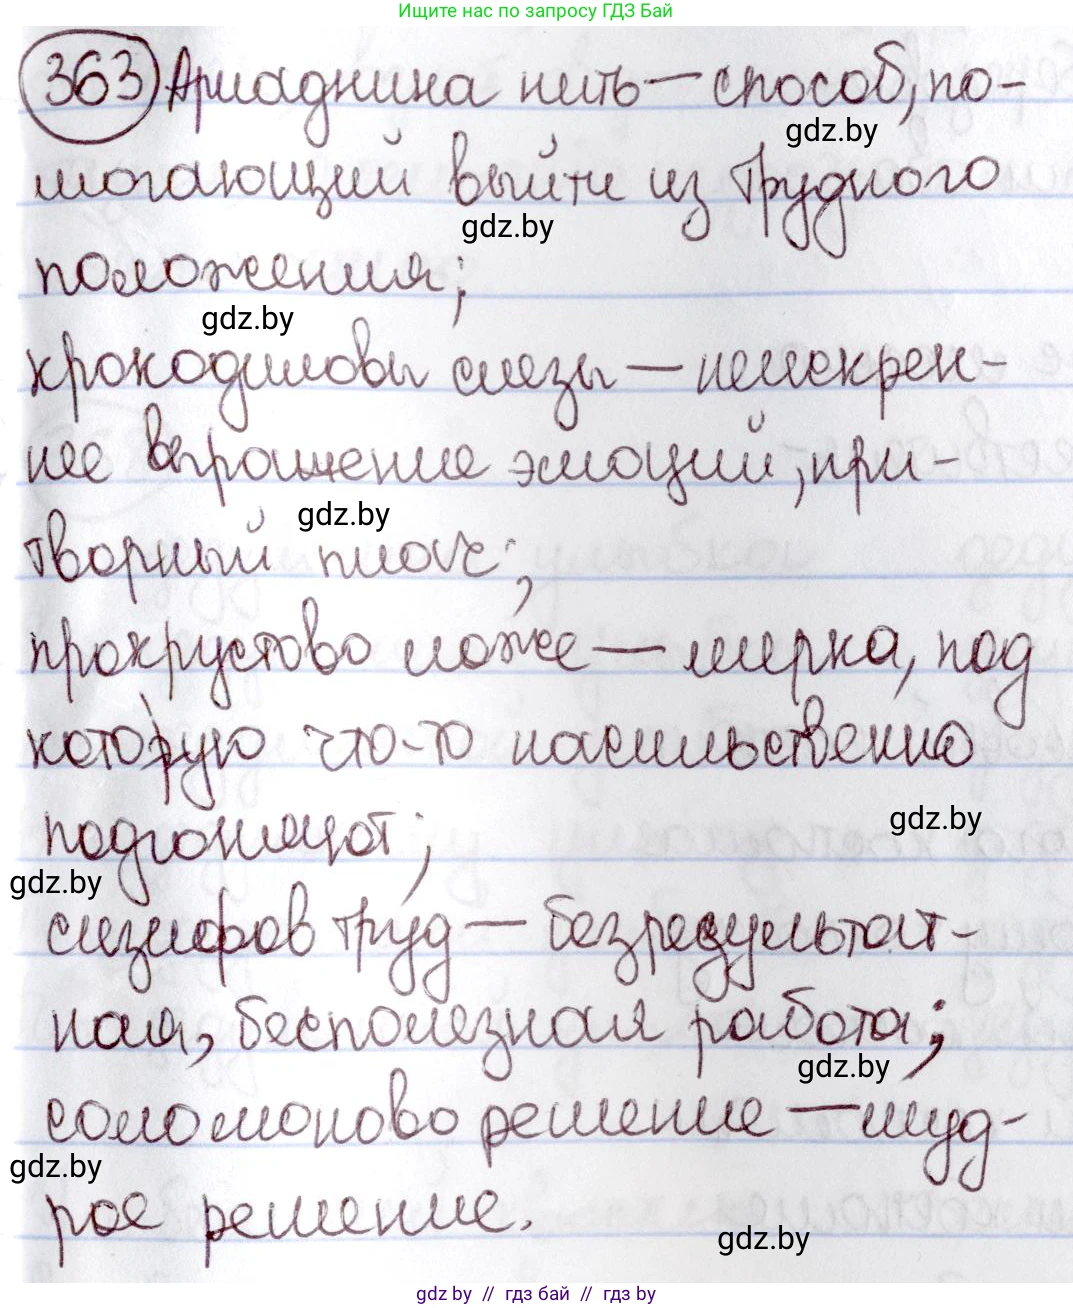 Ищите нас по запросу ГДЗ Бай
363 Ариаднина нить — способ, по-
gdz.by
могающий выйти из трудного
gdz.by
положения;
gdz.by
крокодиловы слезы — неискрен-
нее выражение эмоций, при-
gdz.by
творный плач;
прокрустово ложе — мерка, под
которую что-то насильственно
gdz.by
подгоняют;
gdz.by
сизифов труд — безрезультат-
ная, бесполезная работа;
gdz.by
соломоново решение — муд-
gdz.by
рое решение.
gdz.by
gdz.by // гдз бай // гдз by